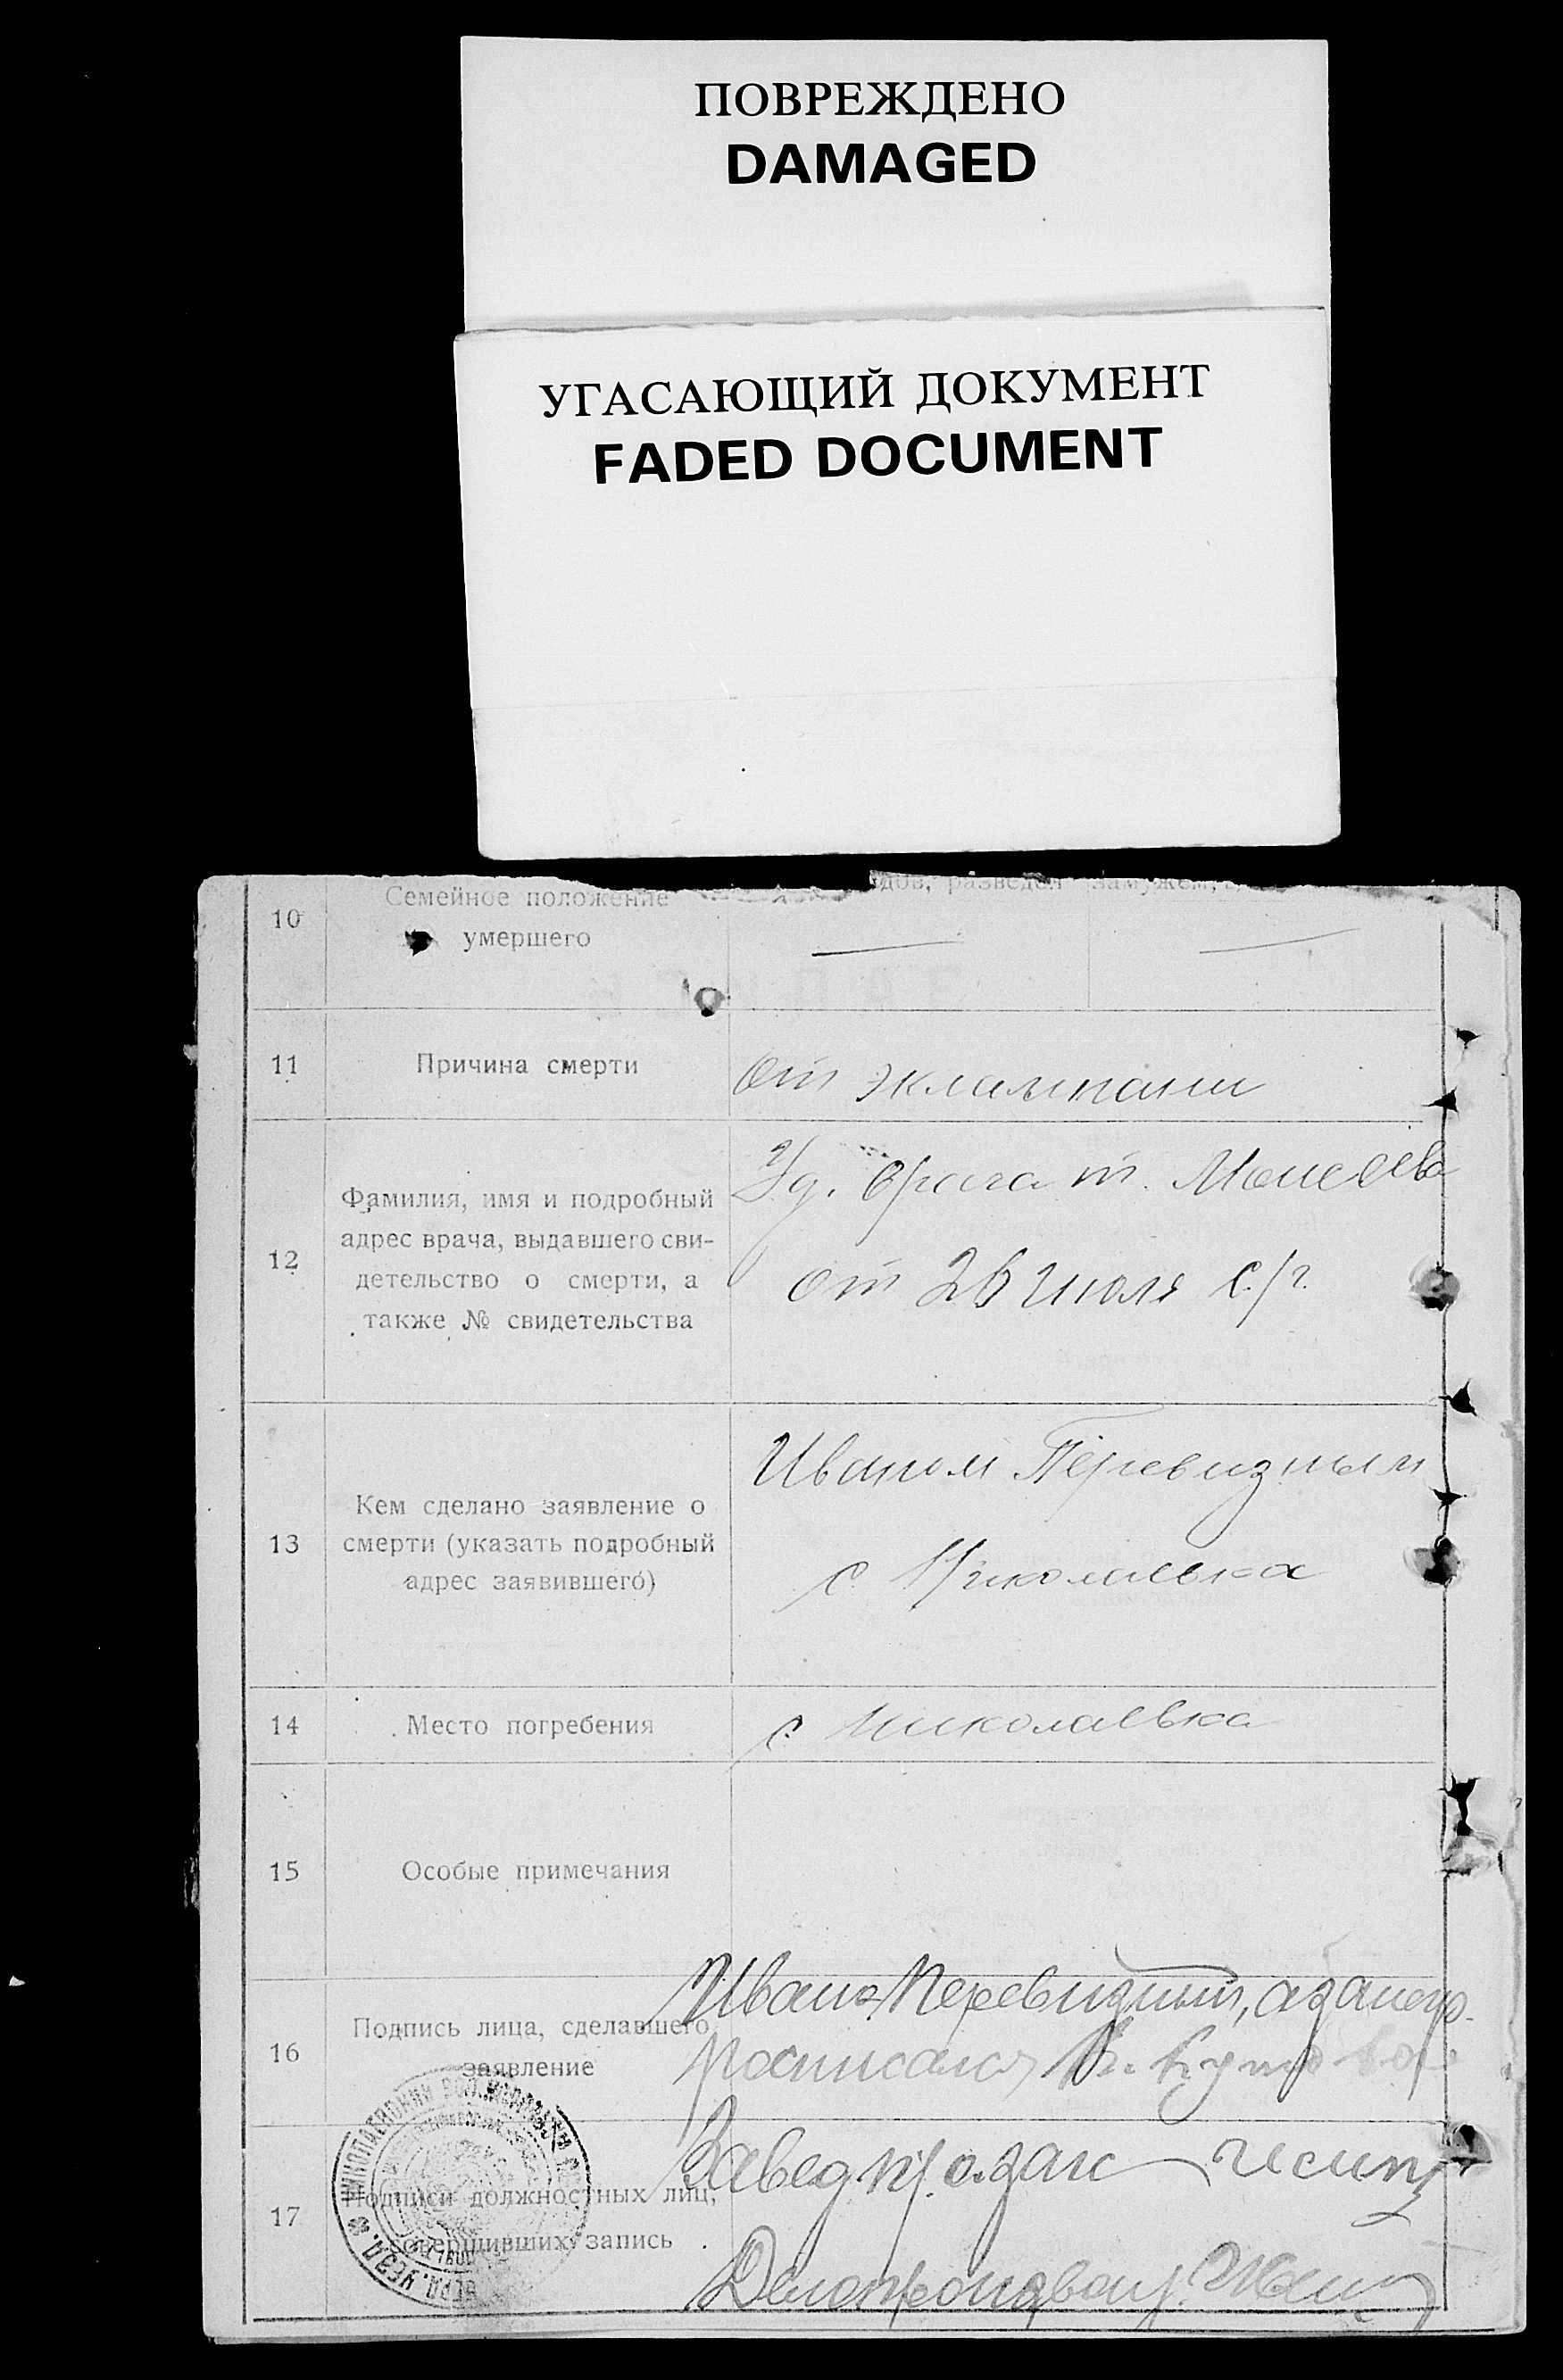 ПОВРЕЖДЕНО
DAMAGED
УГАСАЮЩИЙ ДОКУМЕНТ
FADED DOCUMENT
10
Семейное положение
умершего
разведен
замужем,
11
Причина смерти
от эклампсии
12
Фамилия, имя и подробный
адрес врача, выдавшего сви-
детельство о смерти, а
также № свидетельства
Уд. врача т. Моисеева
от 26 июля с/г.
13
Кем сделано заявление о
смерти (указать подробный
адрес заявившего)
Иваном Перевизным
с. Николаевка
14
Место погребения
с. Николаевка
15
Особые примечания
16
Подпись лица, сделавшего
заявление
Иван Перевизный, а за него
расписался
17
Подписи должностных лиц,
совершивших запись
Завед
Делопроизвод